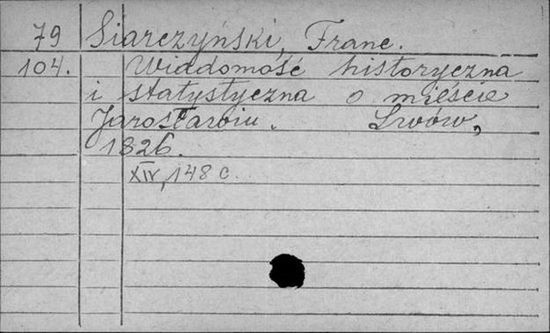 79 Siarczyński, Franc.
104. Wiadomość historyczna
i statystyczna o mieście
Jarosławiu. Lwów,
1826.
XIV, 148 c.